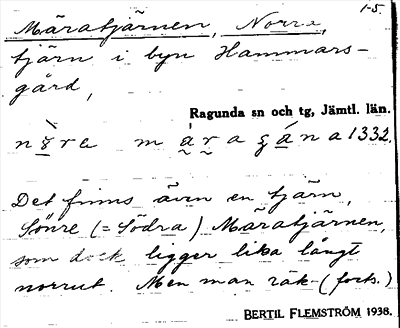 1-5.
Märatjärnen, Norra,
tjärn i byn Hammars-
gård,
Ragunda sn och tg, Jämtl. län.
1332.
Det finns även en tjärn,
Sönre (= Södra) Märatjärnen,
som dock ligger lika långt
norrut. Men man räk- (forts.)
BERTIL FLEMSTRÖM 1938.